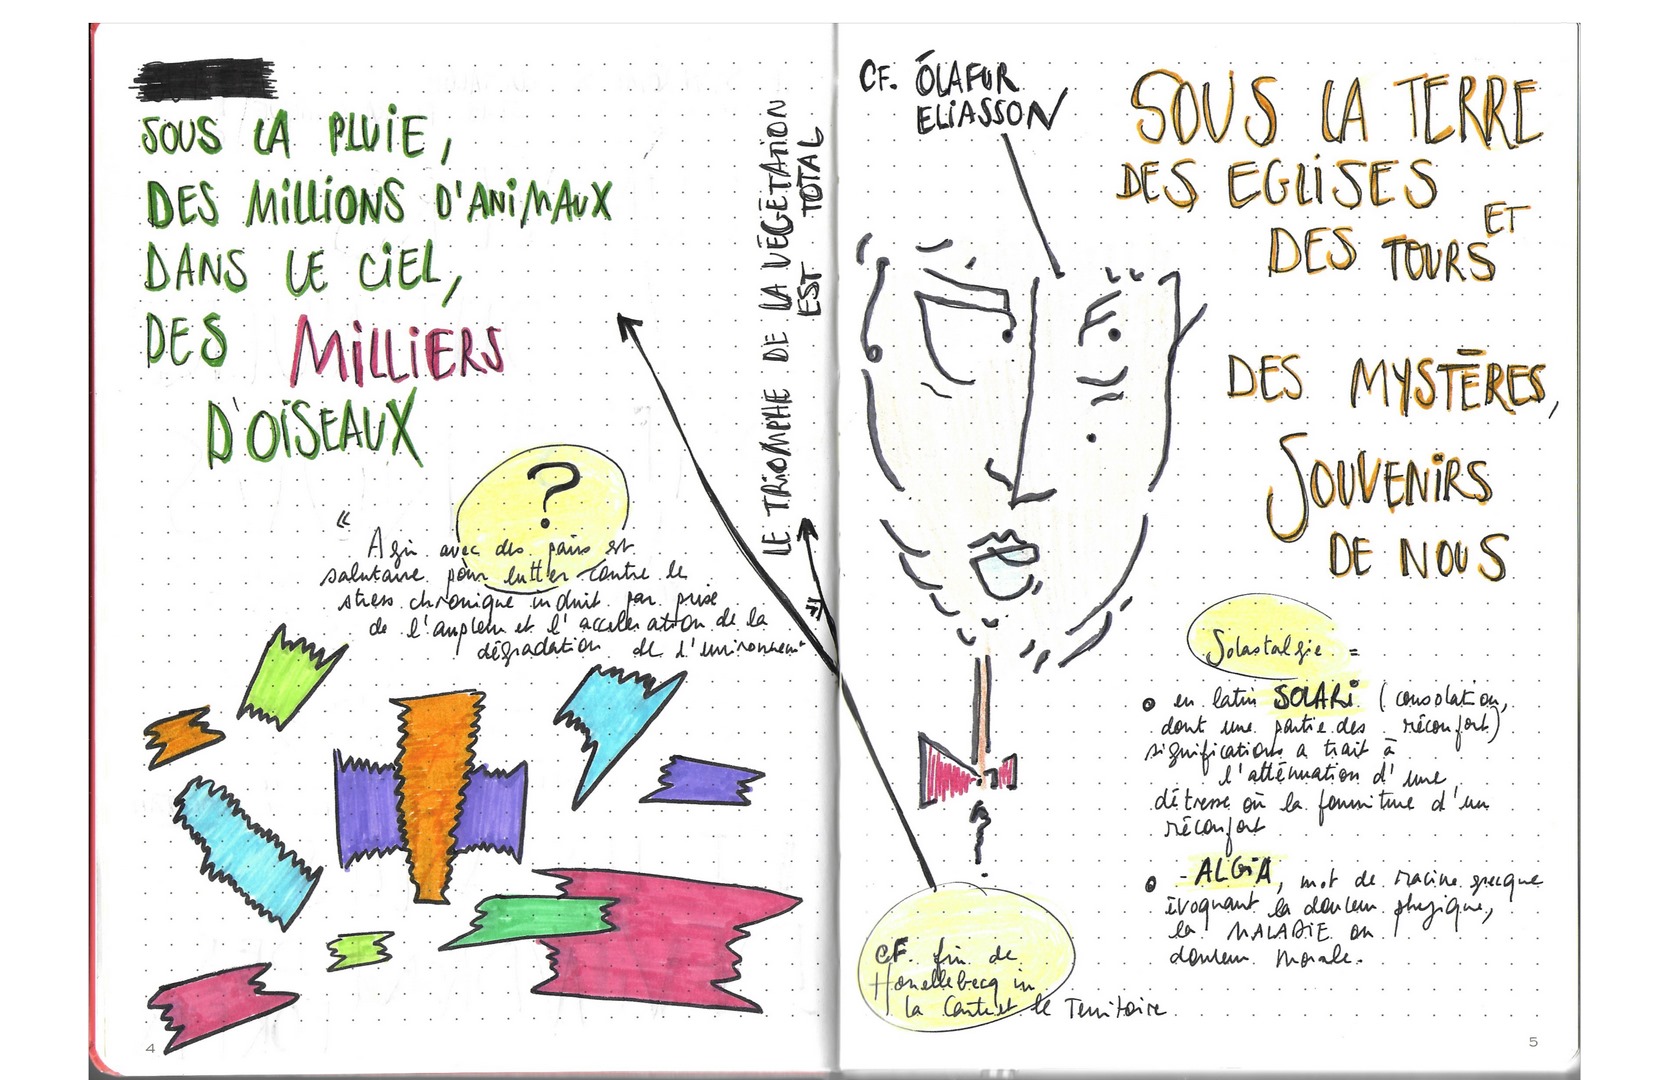 SOUS LA PLUIE,
DES MILLIONS D'ANIMAUX
DANS LE CIEL,
DES MILLIERS
D'OISEAUX
?
« Agir avec des pairs est
salutaire pour lutter contre le
stress chronique induit par prise
de l'ampleur et l'acceleration de la
dégradation de l'environnemt
LE TRIOMPHE DE LA VÉGÉTATION
EST TOTAL
4
CF. ÓLAFUR
ELIASSON
SOUS LA TERRE
DES EGLISES
ET
DES TOURS
DES MYSTÈRES,
SOUVENIRS
DE NOUS
Solastalgie =
en latin SOLARi (consolation,
dont une partie des réconfort)
significations a trait à
l'atténuation d'une
détresse où la fourniture d'un
réconfort
-ALGiA, mot de racine grecque
évoquant la douleur physique,
la MALADIE ou
douleur morale.
CF. fin de
Houellebecq in
la Carte et le Territoire
5